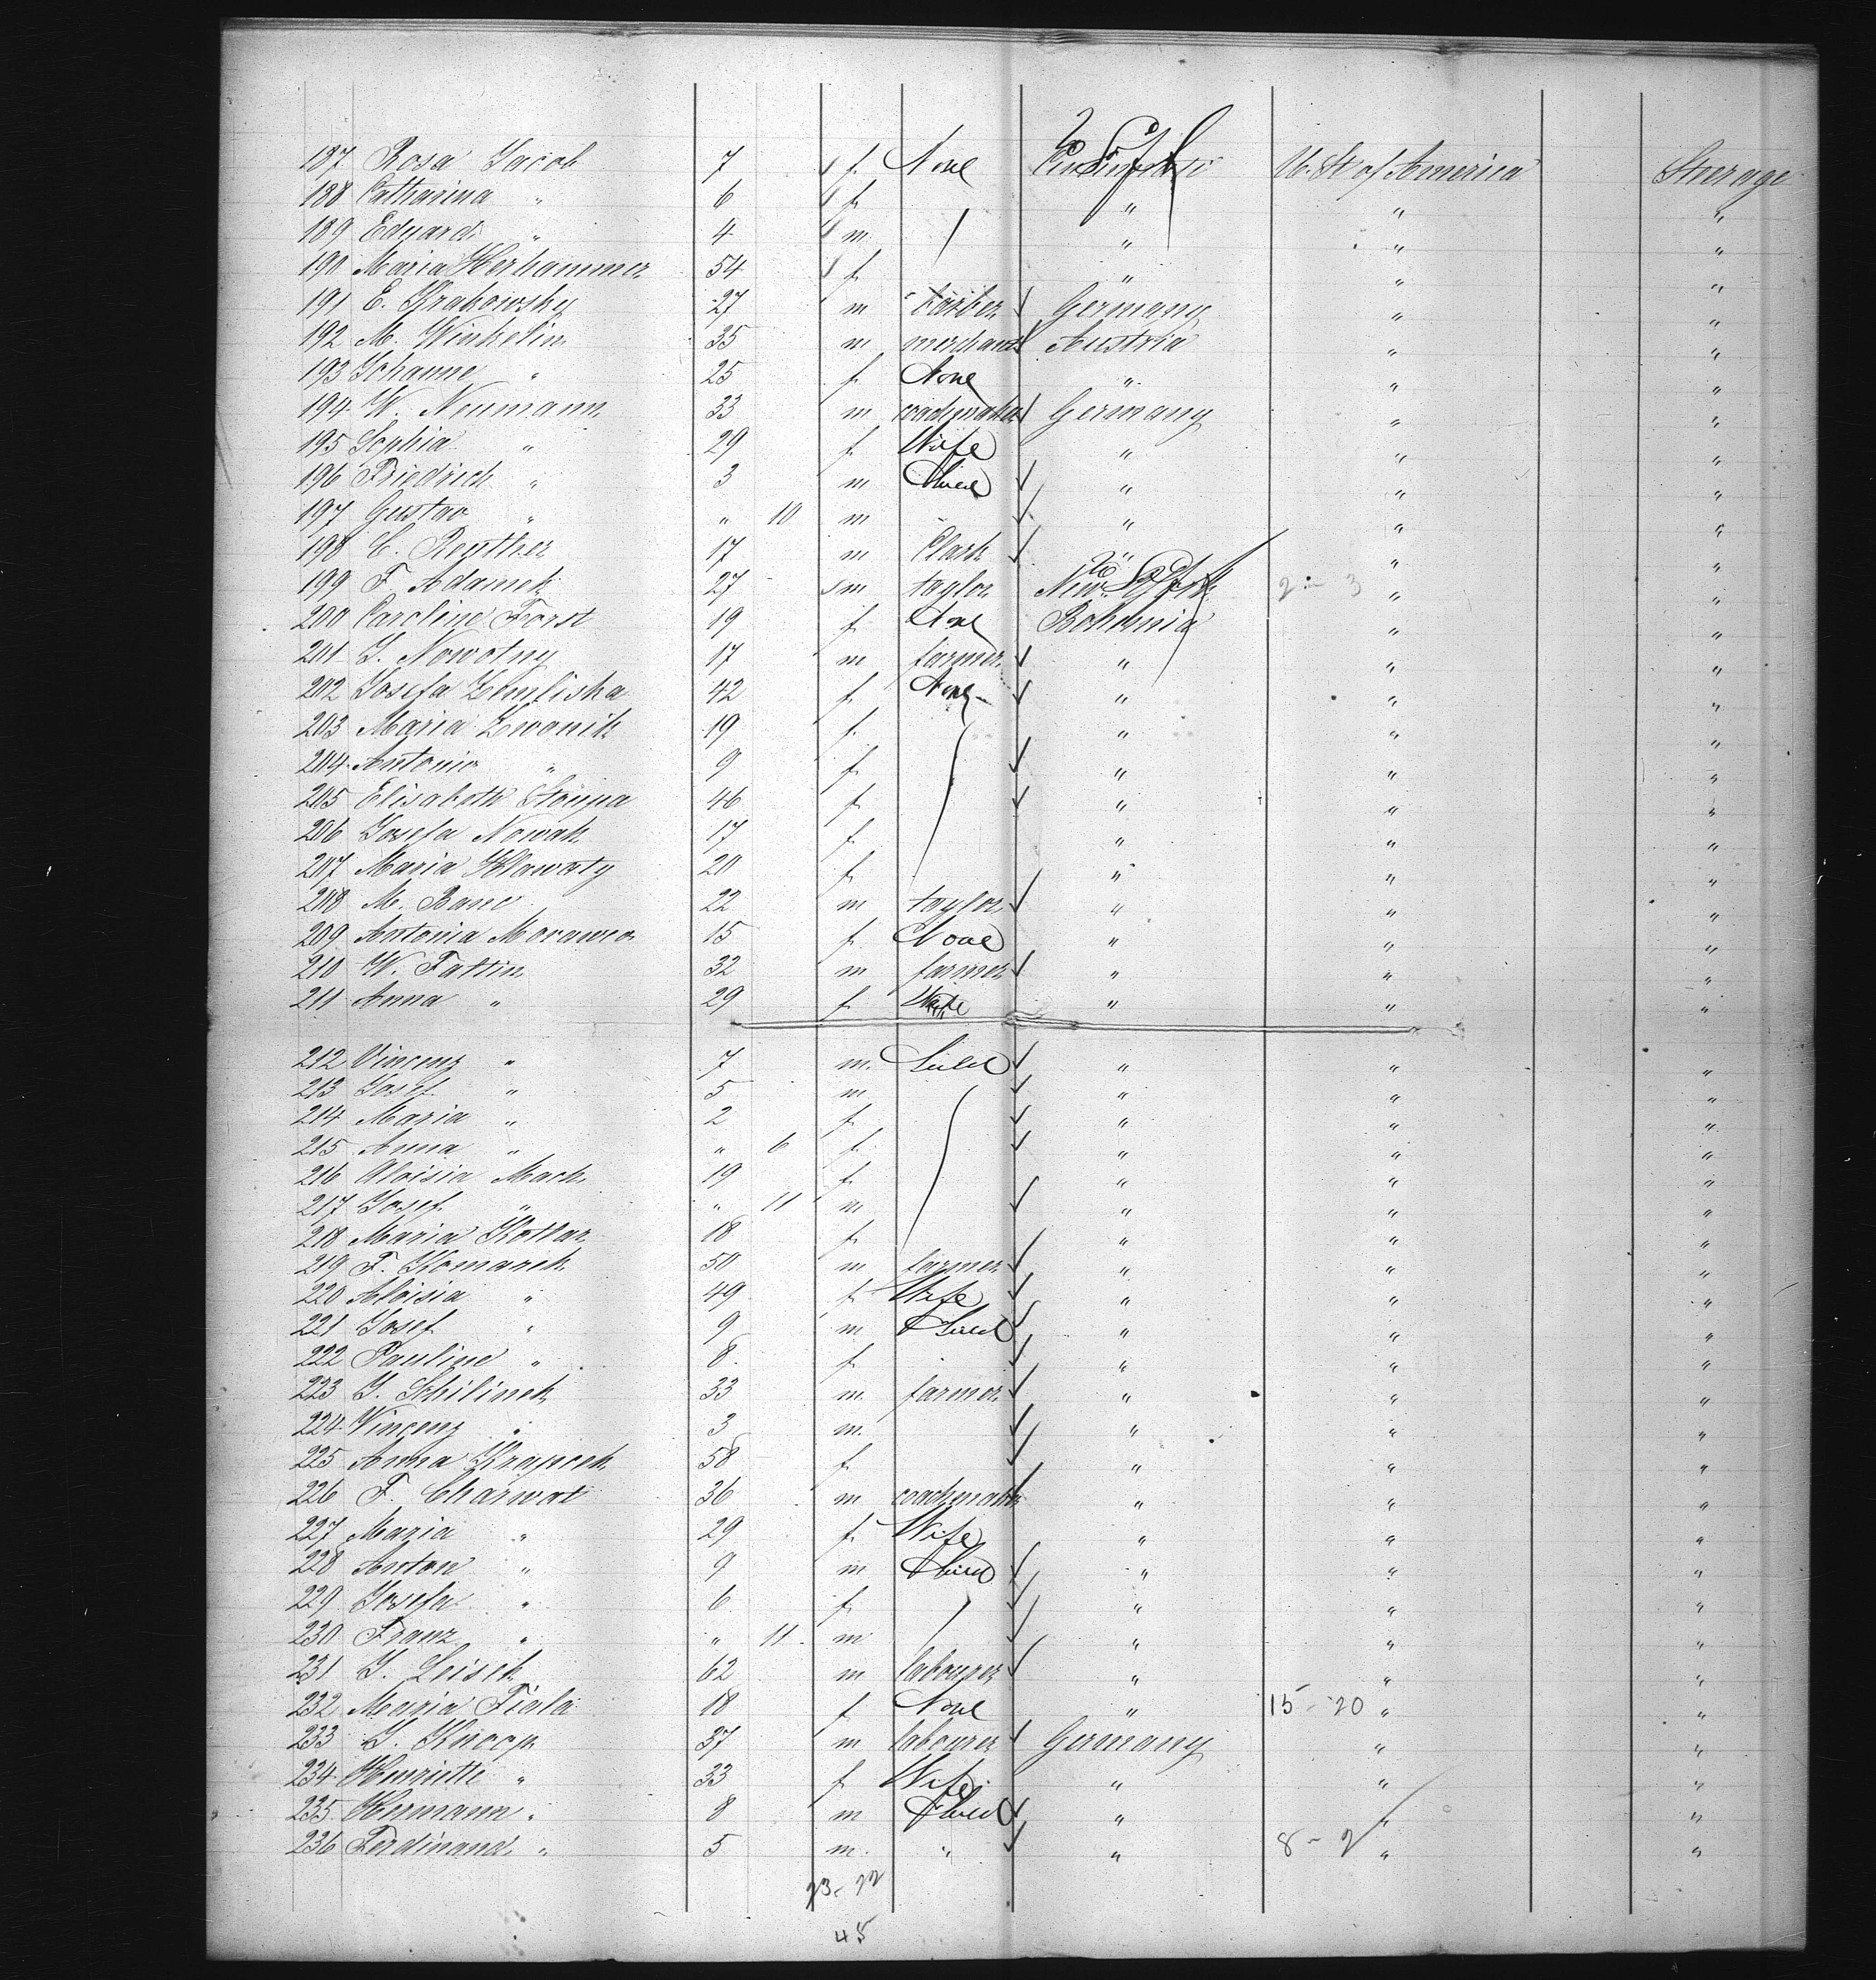 187 Rosa Jacob 7 f. None Cincinnati U. St. of America Steerage
188 Catharina " 6 f. " " "
189 Eduard " 4 m " " "
190 Maria Herhammer 54 f. " " "
191 E. Krakowsky 27 m barber Germany " "
192 M. Winkelin 35 m merchant Austria " "
193 Johanne " 25 f. None " " "
194 W. Neumann 33 m coachmaker Germany " "
195 Sophia " 29 f. Wife " " "
196 Friedrich " 3 m Child " " "
197 Gustav " " 10 m " " " "
198 C. Reuther 17 m Clark " " "
199 F. Adamek 27 m taylor New York 2 - 3 " "
200 Caroline Forst 19 f. None Bohemia " "
201 J. Nowotny 17 m farmer " " "
202 Josefa Zemliska 42 f. None " " "
203 Maria Zwonik 19 f. " " "
204 Antonie " 9 f. " " "
205 Elisabeth Stoupa 46 f. " " "
206 Josefa Nowak 17 f. " " "
207 Maria Hlawaty 20 f. " " "
208 M. Banc 22 m taylor " " "
209 Antonia Morawec 15 f. None " " "
210 W. Fattin 32 m farmer " " "
211 Anna " 29 f. Wife " " "
212 Vincenz " 7 m. Child " " "
213 Josef " 5 m " " "
214 Maria " 2 f. " " "
215 Anna " " 6 f. " " "
216 Aloisia Mach 19 f. " " "
217 Josef " " 11 m " " "
218 Maria Kottar 18 f. " " "
219 F. Komarek 50 m farmer " " "
220 Aloisia " 49 f. Wife " " "
221 Josef " 9 m Child " " "
222 Pauline " 8 f. " " "
223 J. Schilinek 33 m. farmer " " "
224 Vincenz " 3 m. " " "
225 Anna Krapcek 58 f. " " "
226 F. Charwat 36 m coachmaker " " "
227 Maria " 29 f. Wife " " "
228 Anton " 9 m Child " " "
229 Josefa " 6 f. " " "
230 Franz " " 11 m " " "
231 J. Leisek 62 m labourer " " "
232 Maria Fiala 18 f None " 15 - 20 " "
233 J. Knoop 37 m labourer Germany " "
234 Henriette " 33 f Wife " " "
235 Hermann " 8 m Child " " "
236 Ferdinand " 5 m. " " 8 - 2 " "
23 - 22
45